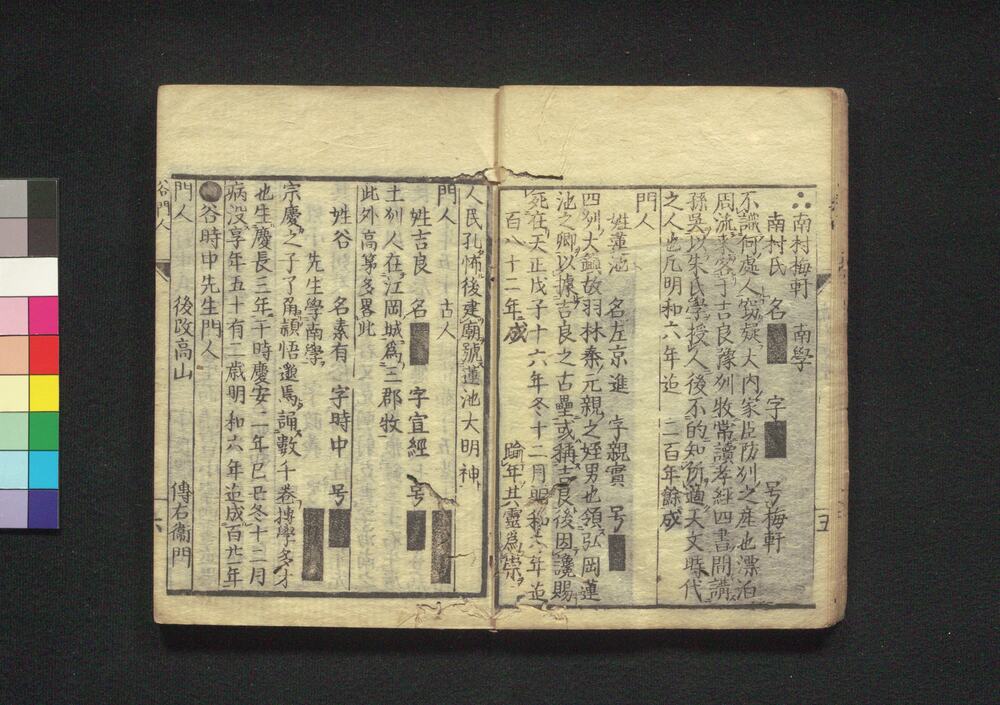 ∴南村梅軒 南學
南村氏 名■ 字■ 号梅軒
不識何處人窃疑大内家臣防刕之産也漂泊
周流来客于吉良豫刕牧常讀孝経四書間講
孫吳以朱氏學授人後不的知所適天文時代
之人也凡明和六年迄 二百年餘成
門人
姓蓮池 名左京進 字親實 号■
四刕大 故羽林秦元親之姪男也領弘岡蓮
池之郷以據吉良之古壘或稱吉良後因讒賜
死在天正戊子十六年冬十二月 明和六年迄
百八十二年成 踰年其靈為祟
人民孔怖後建廟號蓮池大明神
門人 古人
姓吉良 名■ 字宣經 号■
土刕人在江岡城為三郡牧
此外高第多畧此
姓谷 名素有 字時中 号■
先生學南學
宗慶之子了角頴悟邁焉誦數千巻摶學多才
也生慶長三年于時慶安二年已丑冬十二月
病没享年五十有二歳明和六年迄成百廿一年
●谷時中先生門人
門人 後改高山 傳右衞門
谷門人